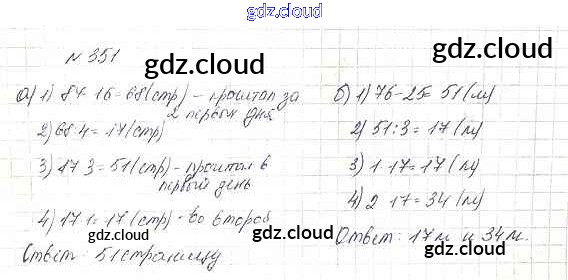 gdz.cloud
№ 351
gdz.cloud
gdz.cloud
а) 1) 84-16=68(стр) - прочитал за
2 первых дня
2) 68:4=17(стр)
3) 17·3=51(стр) - прочитал в
первый день
4) 17·1=17(стр) - во второй
Ответ: 51 страницу.
б) 1) 76-25=51(м)
2) 51:3=17(м)
3) 1·17=17(м)
4) 2·17=34(м)
Ответ: 17м и 34м.
gdz.cloud
gdz.cloud
gdz.cloud
gdz.cloud